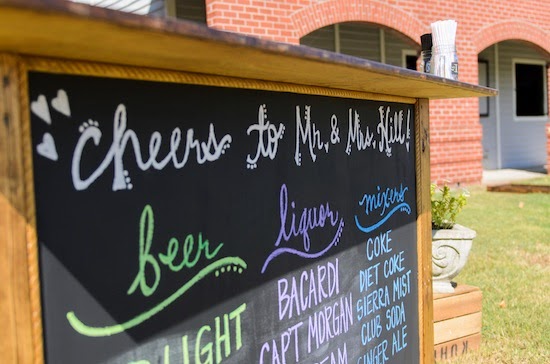 cheers to Mr. & Mrs. Hill!
beer
LIGHT
liquor
BACARDI
CAPT MORGAN
mixers
COKE
DIET COKE
SIERRA MIST
CLUB SODA
GINGER ALE